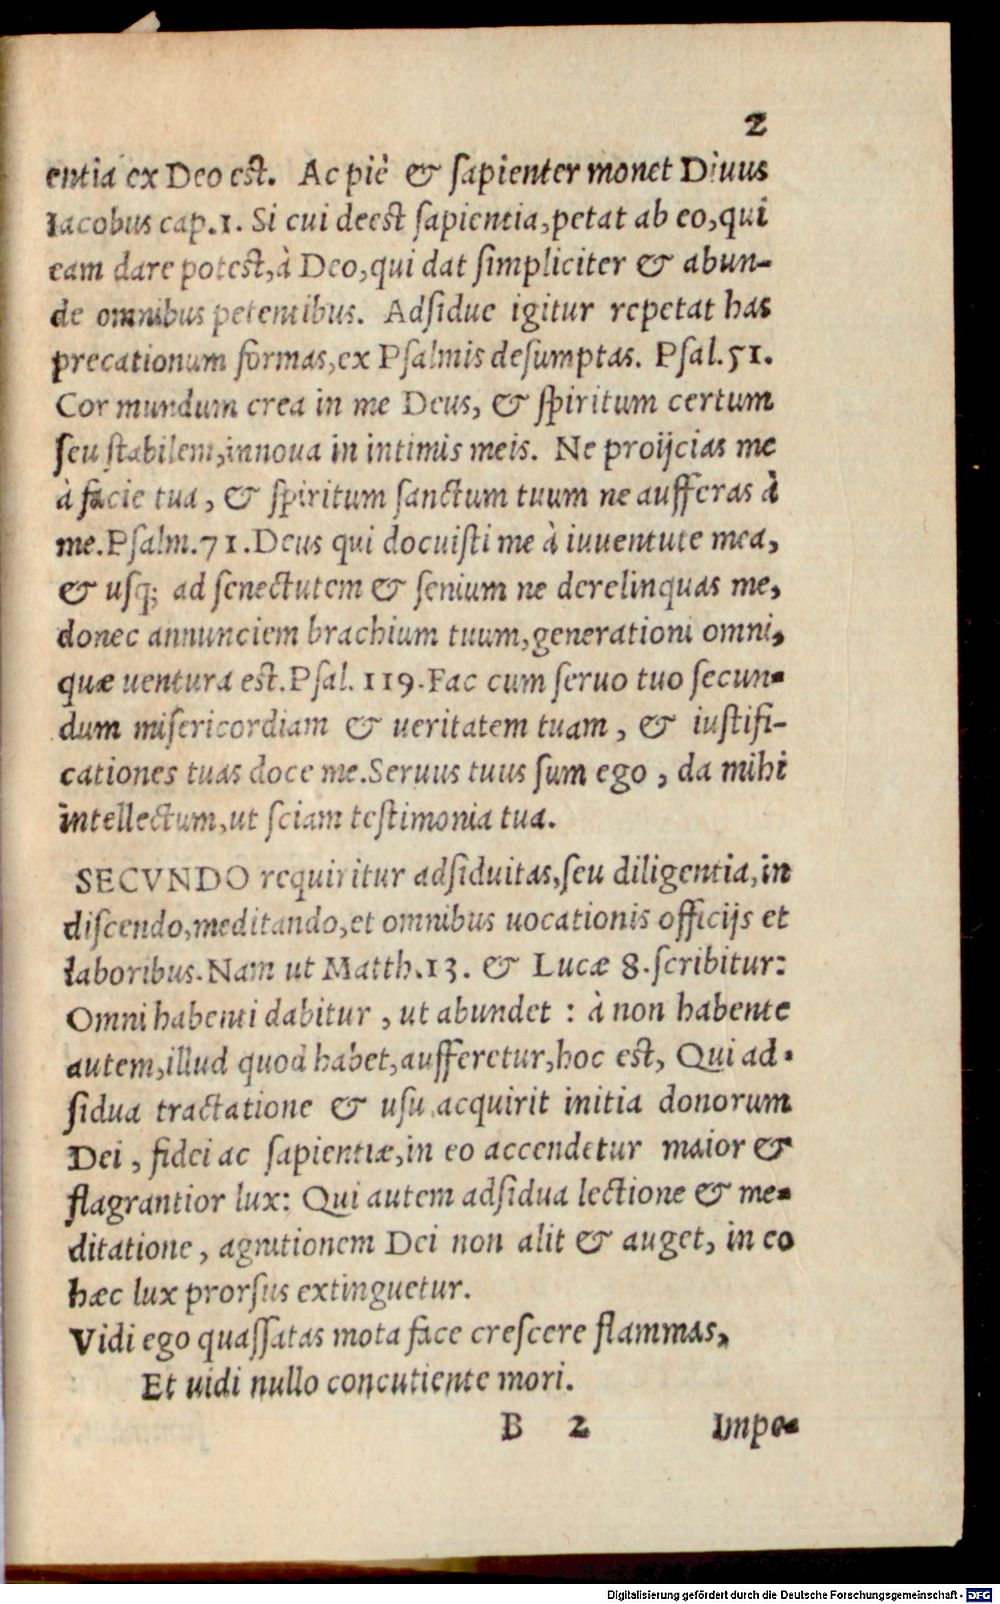 2
entia ex Deo est. Ac piè & sapienter monet Diuus
Iacobus cap.1. Si cui deest sapientia, petat ab eo, qui
eam dare potest, à Deo, qui dat simpliciter & abun-
de omnibus petentibus. Adsidue igitur repetat has
precationum formas, ex Psalmis desumptas. Psal.51.
Cor mundum crea in me Deus, & spiritum certum
seu stabilem, innoua in intimis meis. Ne proijcias me
à facie tua, & spiritum sanctum tuum ne aufferas à
me. Psalm.71. Deus qui docuisti me à iuuentute mea,
& usq; ad senectutem & senium ne derelinquas me,
donec annunciem brachium tuum, generationi omni,
quæ uentura est. Psal. 119. Fac cum seruo tuo secun-
dum misericordiam & ueritatem tuam, & iustifi-
cationes tuas doce me. Seruus tuus sum ego, da mihi
intellectum, ut sciam testimonia tua.
SECVNDO requiritur adsiduitas, seu diligentia, in
discendo, meditando, et omnibus uocationis officijs et
laboribus. Nam ut Matth.13. & Lucæ 8. scribitur:
Omni habenti dabitur, ut abundet : à non habente
autem, illud quod habet, aufferetur, hoc est, Qui ad-
sidua tractatione & usu acquirit initia donorum
Dei, fidei ac sapientiæ, in eo accendetur maior &
flagrantior lux: Qui autem adsidua lectione & me-
ditatione, agnitionem Dei non alit & auget, in eo
hæc lux prorsus extinguetur.
Vidi ego quassatas mota face crescere flammas,
Et uidi nullo concutiente mori.
B 2 Impe-
Digitalisierung gefördert durch die Deutsche Forschungsgemeinschaft - DFG